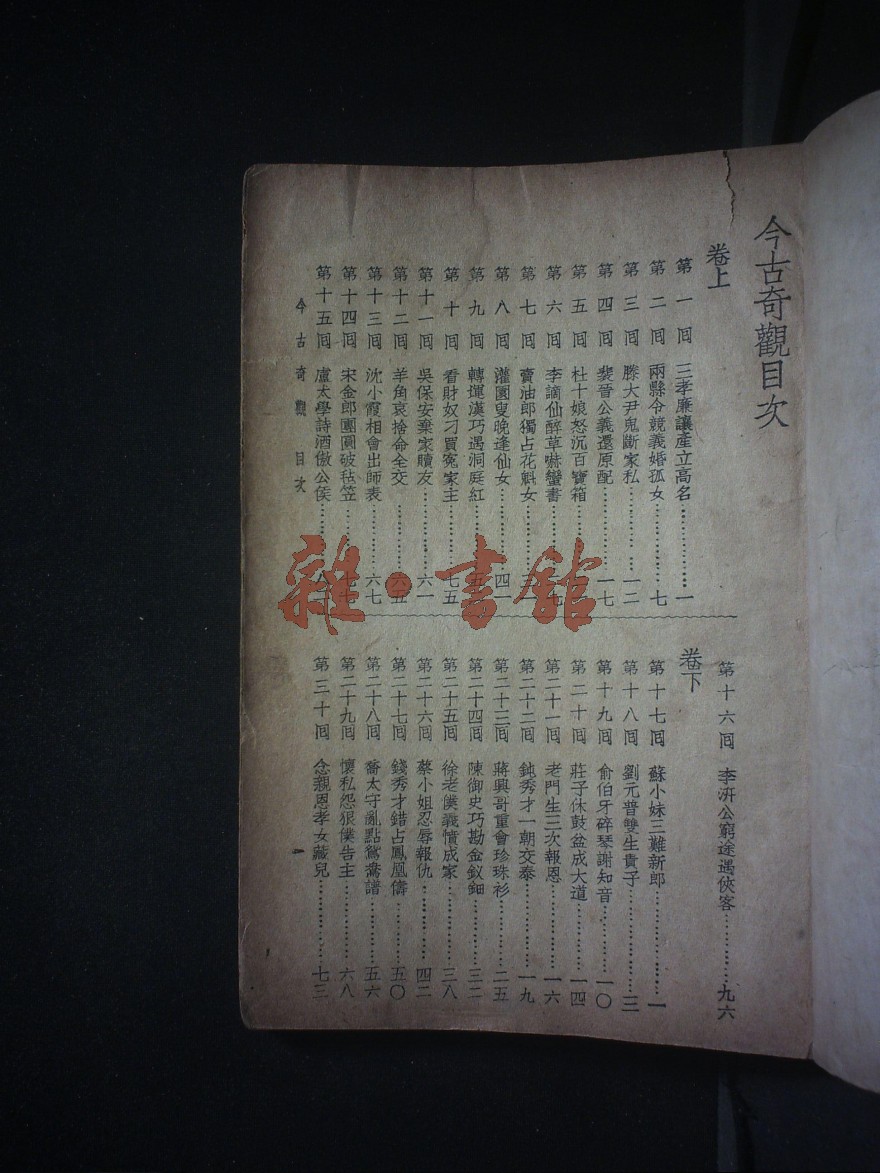 今古奇觀目次
卷上
第一回 三孝廉讓產立高名……一
第二回 兩縣令競義婚孤女……七
第三回 滕大尹鬼斷家私……一二
第四回 裴晉公義還原配……一七
第五回 杜十娘怒沉百寶箱……
第六回 李謫仙醉草嚇蠻書……
第七回 賣油郎獨占花魁女……
第八回 灌園叟晚逢仙女……四一
第九回 轉運漢巧遇洞庭紅……
第十回 看財奴刁買冤家主……七五
第十一回 吳保安棄家贖友……六一
第十二回 羊角哀捨命全交……六五
第十三回 沈小霞相會出師表……六七
第十四回 宋金郎團圓破毡笠……七七
第十五回 盧太學詩酒傲公侯……
第十六回 李汧公窮途遇俠客……九六
卷下
第十七回 蘇小妹三難新郎……一
第十八回 劉元普雙生貴子……三
第十九回 俞伯牙碎琴謝知音……一〇
第二十回 莊子休鼓盆成大道……一四
第二十一回 老門生三次報恩……一六
第二十二回 鈍秀才一朝交泰……一九
第二十三回 蔣興哥重會珍珠衫……二五
第二十四回 陳御史巧勘金釵鈿……三二
第二十五回 徐老僕義憤成家……三八
第二十六回 蔡小姐忍辱報仇……四二
第二十七回 錢秀才錯占鳳凰儔……五〇
第二十八回 喬太守亂點鴛鴦譜……五六
第二十九回 懷私怨狠僕告主……六八
第三十回 念親恩孝女藏兒……七三
今古奇觀 目次
一
雜·書館